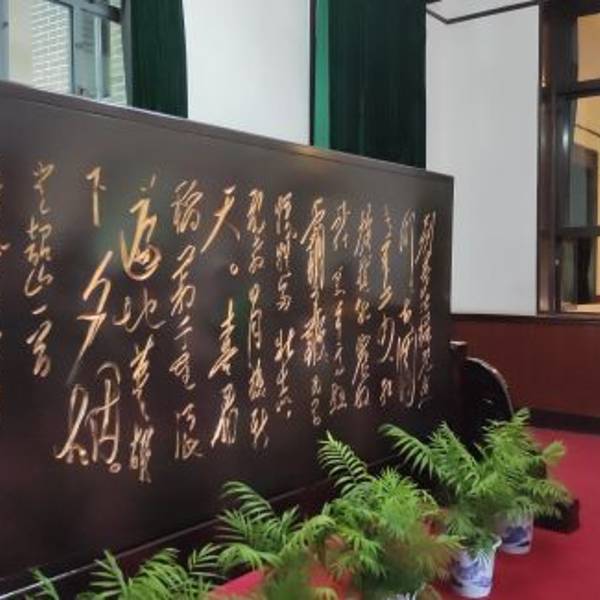 别梦依稀咒逝
川故园
三十二年前红
旗卷起农奴
戟黑手高悬
霸主鞭为有
牺牲多壮志
敢教日月换新
天。喜看
稻菽千重浪
遍地英雄
下夕烟。
韶山一首